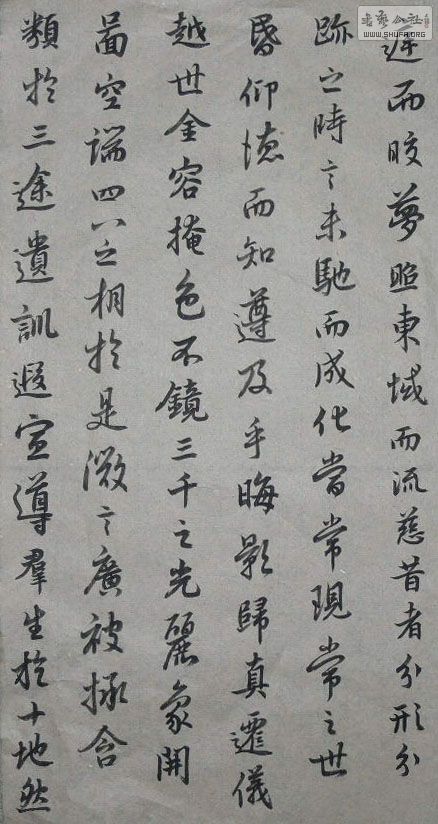 庭而皎夢照東域而流慈昔者分形分
跡之時言未馳而成化當常現常之世
昬仰德而知遵及乎晦影歸真遷儀
越世金容掩色不鏡三千之光麗象開
啚空端四八之相於是微言廣被拯含
類於三途遺訓遐宣導羣生於十地然
书艺公社
WWW.SHUFA.ORG